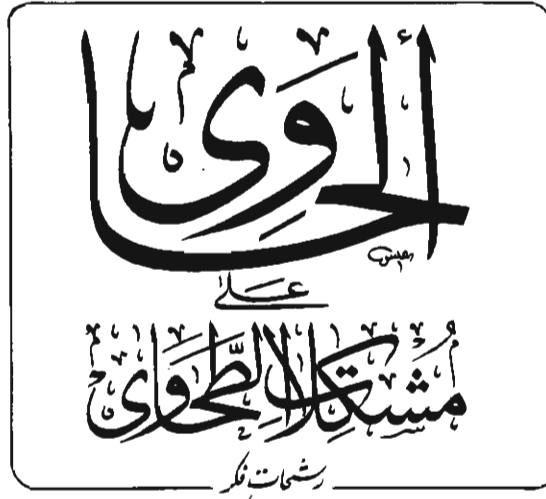 الحاوی
علیٰ
مشکلات الطحاوی
رشحات فکر